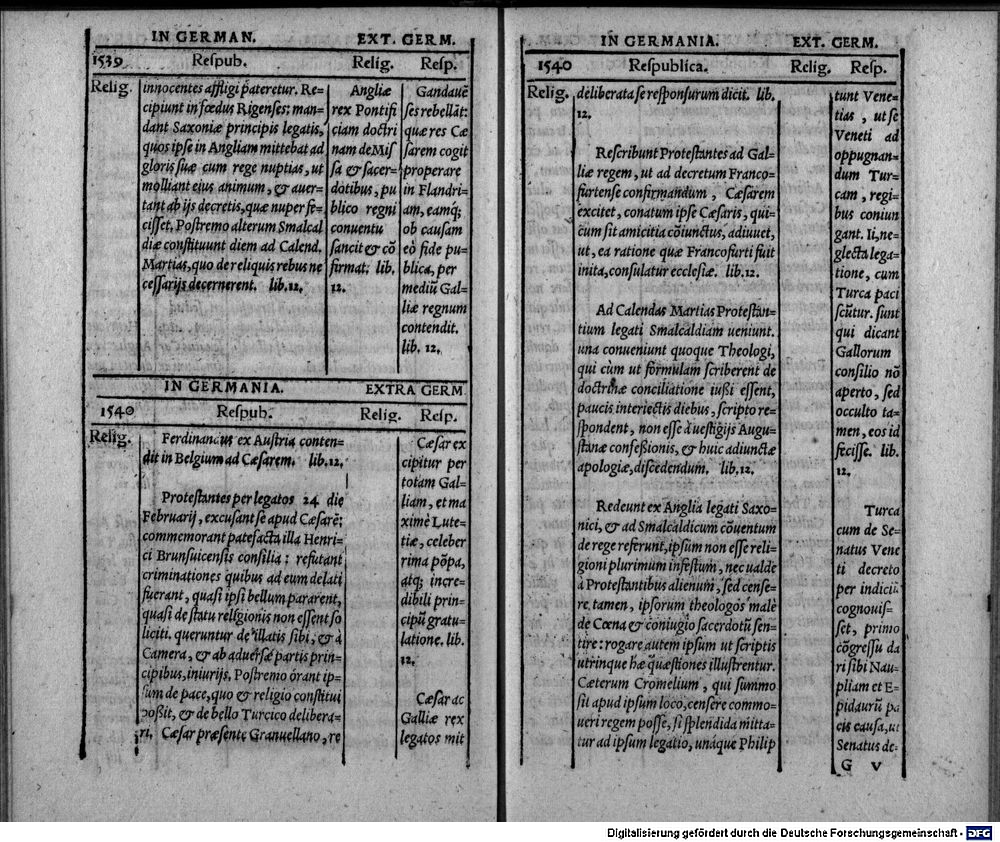 IN GERMAN. EXT. GERM.
1539 Respub. Relig. Resp.
Relig.
innocentes affligi pateretur. Re-
cipiunt in fœdus Rigenses: man-
dant Saxoniæ principis legatis,
quos ipse in Angliam mittebat ad
gloris suæ cum rege nuptias, ut
molliant eius animum, & auer-
tant ab ijs decretis, quæ nuper fe-
cisset. Postremo alterum Smalcal
diæ constituunt diem ad Calend.
Martias, quo de reliquis rebus ne
cessarijs decernerent. lib. 12.
Angliæ
rex Pontifi
ciam doctri
nam de Mis
sa & sacer-
dotibus, pu
blico regni
conuentu
sancit & cō
firmat. lib.
12.
Gandauē
ses rebellāt:
quæ res Cæ
sarem cogit
properare
in Flandri-
am, eamq;
ob causam
eò fide pu-
blica, per
mediū Gal-
liæ regnum
contendit.
lib. 12.
IN GERMANIA. EXTRA GERM
1540 Respub. Relig. Resp.
Relig.
Ferdinandus ex Austria conten-
dit in Belgium ad Cæsarem. lib. 12.
Protestantes per legatos 24 die
Februarij, excusant se apud Cæsarē:
commemorant patefacta illa Henri-
ci Brunsuicensis consilia: refutant
criminationes quibus ad eum delati
fuerant, quasi ipsi bellum pararent,
quasi de statu religionis non essent so
liciti. queruntur de illatis sibi, & à
Camera, & ab aduersæ partis prin-
cipibus, iniurijs. Postremo orant ip-
sum de pace, quo & religio constitui
possit, & de bello Turcico delibera-
ri. Cæsar præsente Granuellano, re
Cæsar ex
cipitur per
totam Gal-
liam, et ma
ximè Lute-
tiæ, celeber
rima pōpa,
atq; incre-
dibili prin-
cipū gratu-
latione. lib.
12.
Cæsar ac
Galliæ rex
legatos mit
IN GERMANIA. EXT. GERM.
1540 Respublica. Relig. Resp.
Relig.
deliberata se responsurum dicit. lib.
12.
Rescribunt Protestantes ad Gal-
liæ regem, ut ad decretum Franco-
furtense confirmandum, Cæsarem
excitet, conatum ipse Cæsaris, qui-
cum sit amicitia cōiunctus, adiuuet,
ut, ea ratione quæ Francofurti fuit
inita, consulatur ecclesiæ. lib. 12.
Ad Calendas Martias Protestan-
tium legati Smalcaldiam ueniunt.
una conueniunt quoque Theologi,
qui cùm ut formulam scriberent de
doctrinæ conciliatione iussi essent,
paucis interiectis diebus, scripto re-
spondent, non esse à uestigijs Augu-
stanæ confessionis, & huic adiunctæ
apologiæ, discedendum. lib. 12.
Redeunt ex Anglia legati Saxo-
nici, & ad Smalcaldicum cōuentum
de rege referunt, ipsum non esse reli-
gioni plurimum infestum, nec ualde
à Protestantibus alienum, sed cense-
re tamen, ipsorum theologos malè
de Cœna & coniugio sacerdotū sen-
tire: rogare autem ipsum ut scriptis
utrinque hæ quæstiones illustrentur.
Cæterum Cromelium, qui summo
sit apud ipsum loco, censere commo-
ueri regem posse, si splendida mitta-
tur ad ipsum legatio, unáque Philip
tunt Vene-
tias, ut se
Veneti ad
oppugnan-
dum Tur-
cam, regi-
bus coniun
gant. Ii, ne-
glecta lega-
tione, cum
Turca paci
scūtur. sunt
qui dicant
Gallorum
consilio nō
aperto, sed
occulto ta-
men, eos id
fecisse. lib.
12.
Turca
cum de Se-
natus Vene
ti decreto
per indiciū
cognouis-
set, primo
cōgressu da
ri sibi Nau-
pliam et E-
pidaurū pa
cis causa, ut
Senatus de-
G v
Digitalisierung gefördert durch die Deutsche Forschungsgemeinschaft - DFG